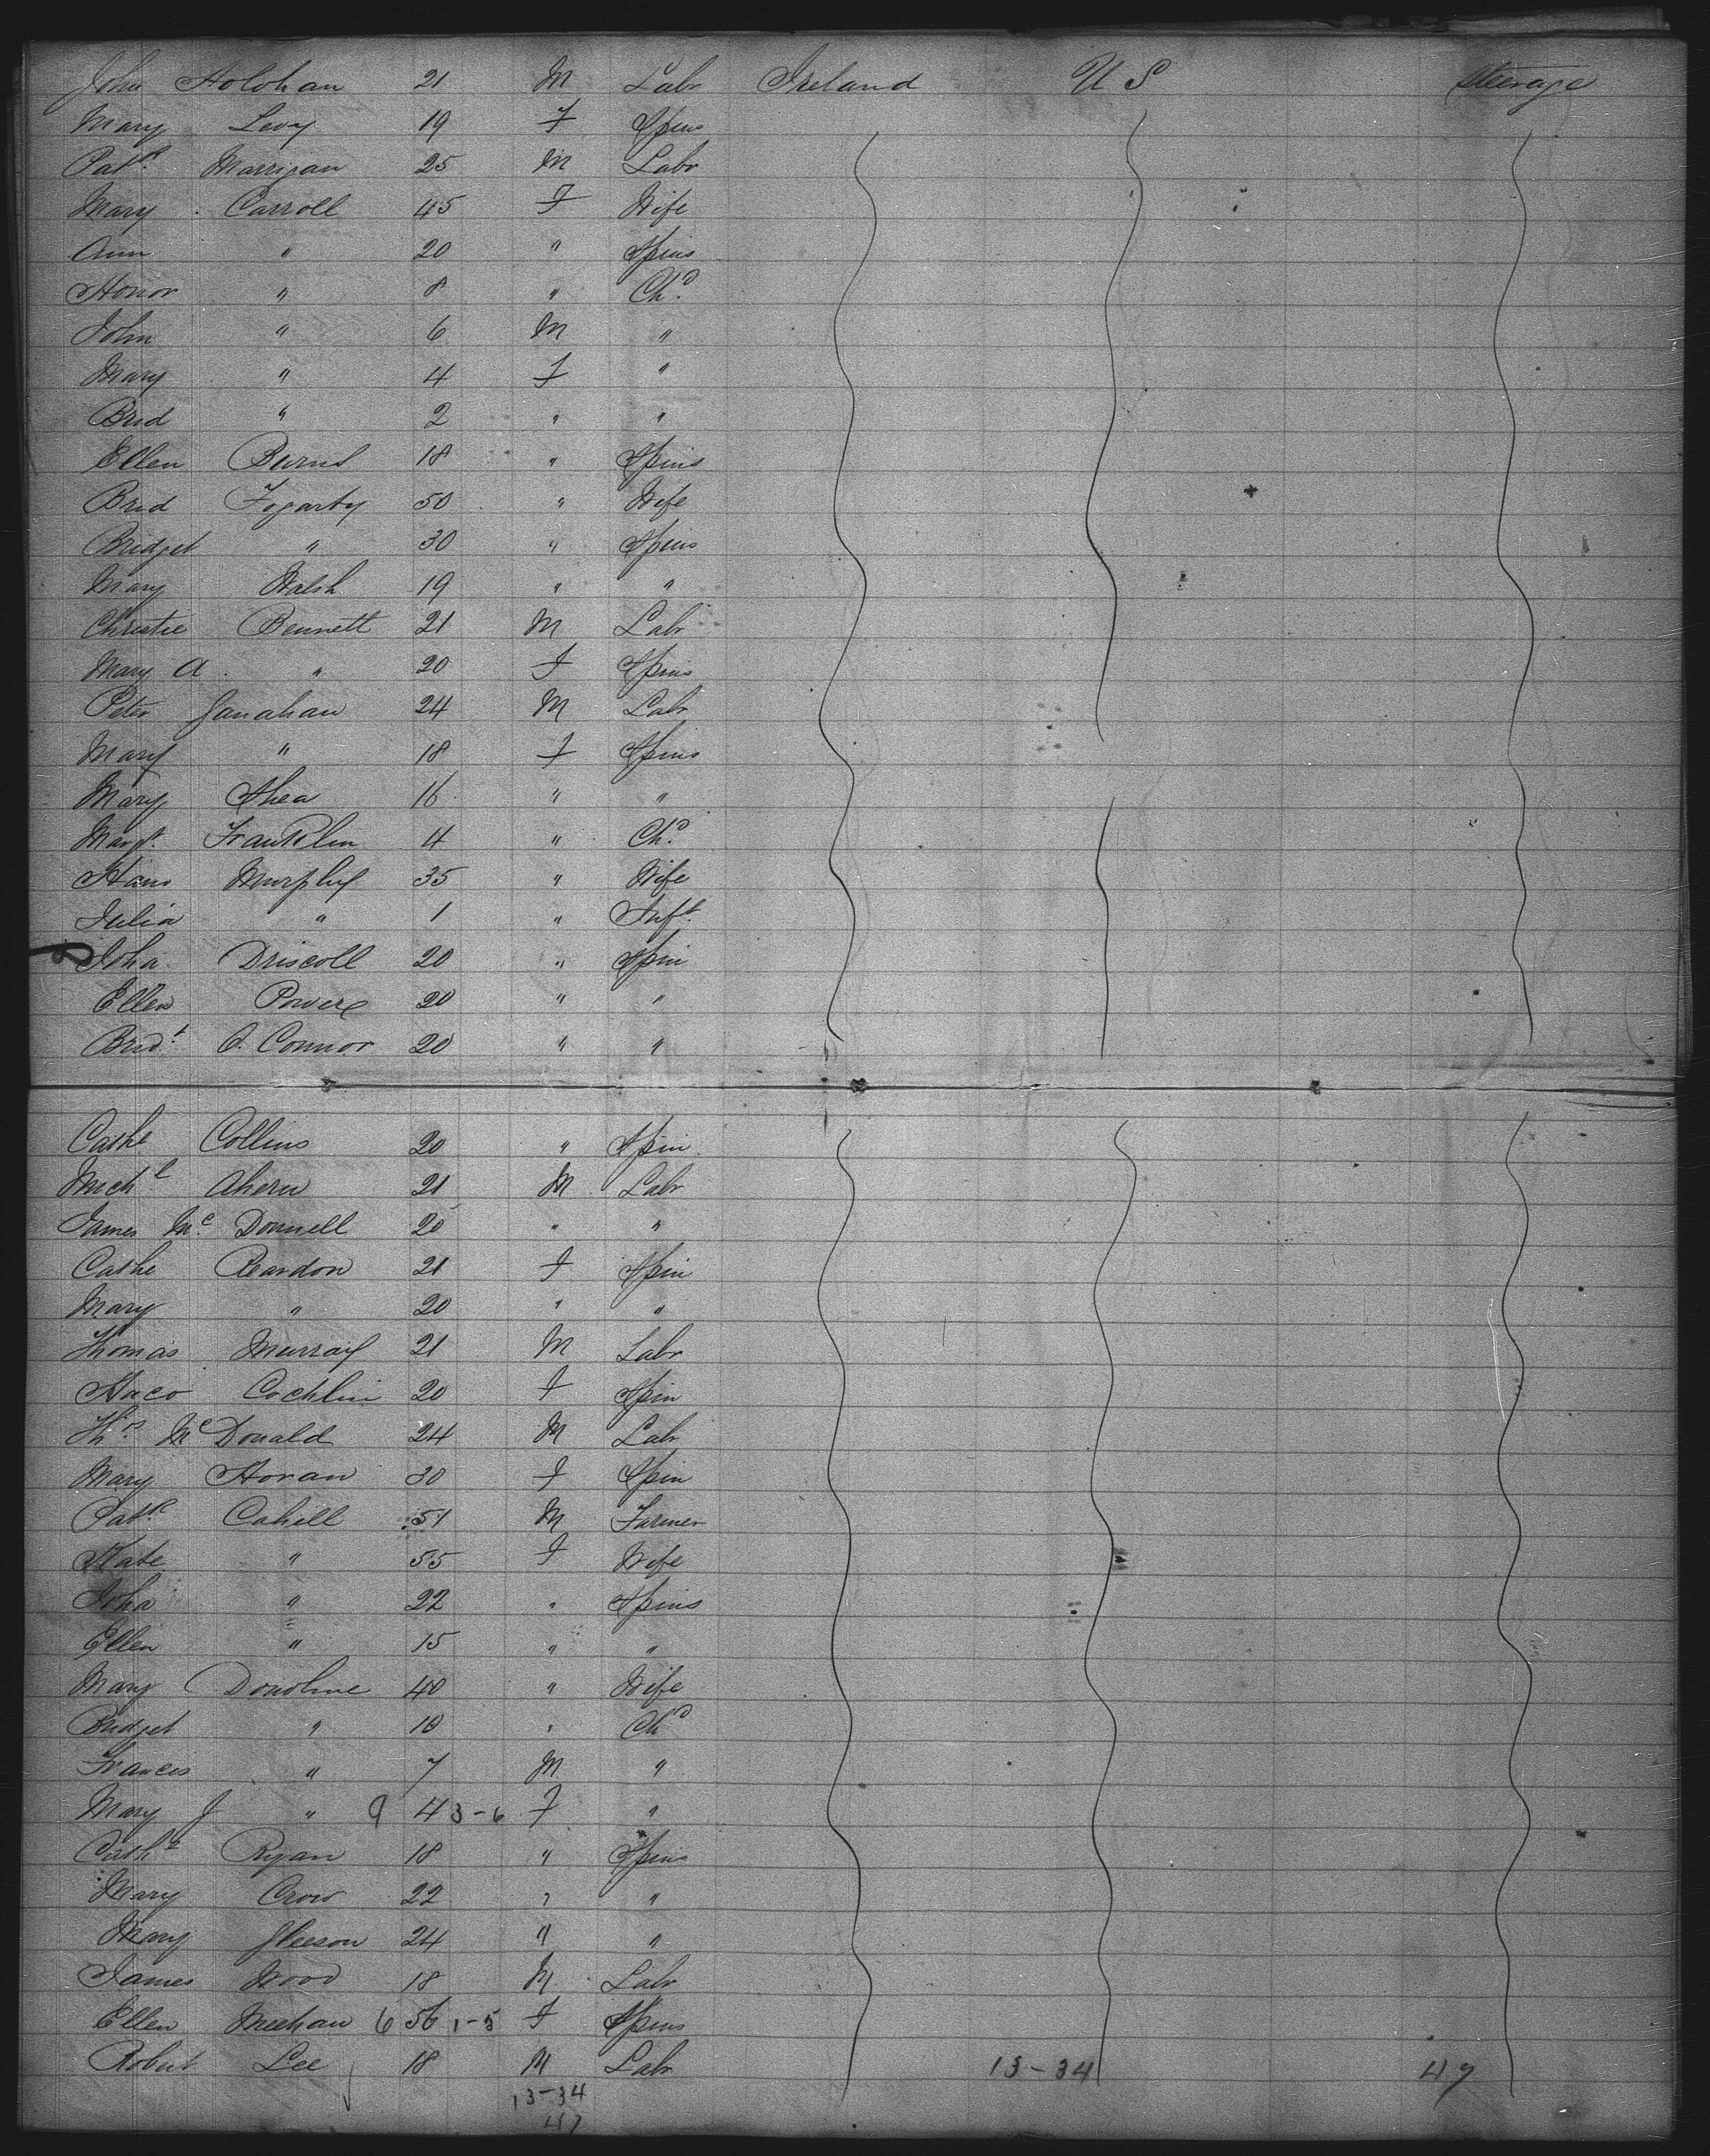 John Holohan 21 M Labr Ireland U S Steerage
Mary Levy 19 F Spins
Patk Marrigan 25 M Labr
Mary Carroll 45 F Wife
Ann " 20 " Spins
Honor " 8 " Chd
John " 6 M "
Mary " 4 F "
Brid " 2 " "
Ellen Burns 18 " Spins
Brid Fogarty 50 " Wife
Bridget " 30 " Spins
Mary Walsh 19 " "
Christie Bennett 21 M Labr
Mary A " 20 F Spins
Peter Ganahan 24 M Labr
Mary " 18 F Spins
Mary Shea 16 " "
Margt. Franklin 4 " Chd
Murphy 35 " Wife
Julia " 1 " Inft.
Joha Driscoll 20 " Spin
Ellen Power 20 " "
Bridt O. Connor 20 " "
Cathe Collins 20 " Spin
Michl Ahern 21 M Labr
James Mc Donnell 20 " "
Cathe Reardon 21 F Spin
Mary " 20 " "
Thomas Murray 21 M Labr
Cochlin 20 F Spin
Ths Mc Donald 24 M Labr
Mary Horan 30 F Spin
Patk Cahill 51 M Farmer
Kate " 55 F Wife
Joha " 22 " Spins
Ellen " 15 " "
Mary Donohue 40 " Wife
Bridget " 10 " Chd
Francis " 7 M "
Mary J " 9 4 3-6 F "
Cathe Ryan 18 " Spins
Mary Crow 22 " "
Mary Gleeson 24 " "
James Wood 18 M Labr
Ellen Meehan 6 56 1-5 F Spins
Robert Lee 18 M Labr 13-34 47
13-34
47